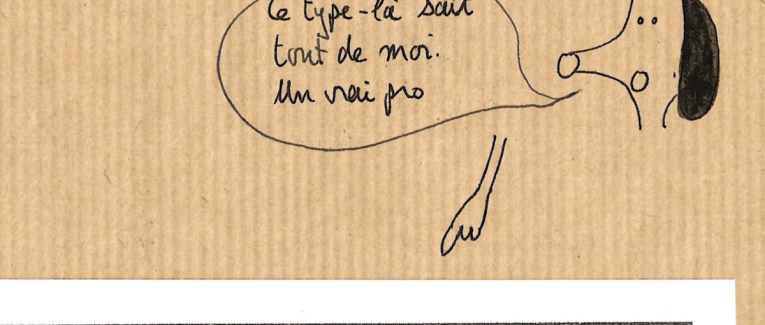 Ce type-là sait
tout de moi.
Un vrai pro